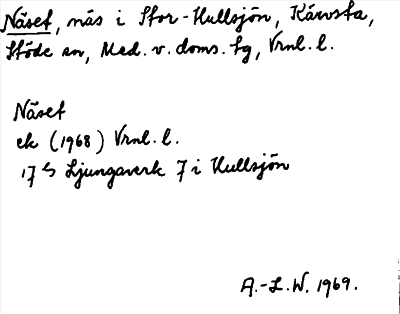 Näset, näs i Stor-Hullsjön, Kärvsta,
Stöde sn, Med. v. doms. tg, Vrnl. l.
Näset
ek (1968) Vrnl. l.
17 Ljungaverk 7 i Hullsjön
A.-L.W. 1969.